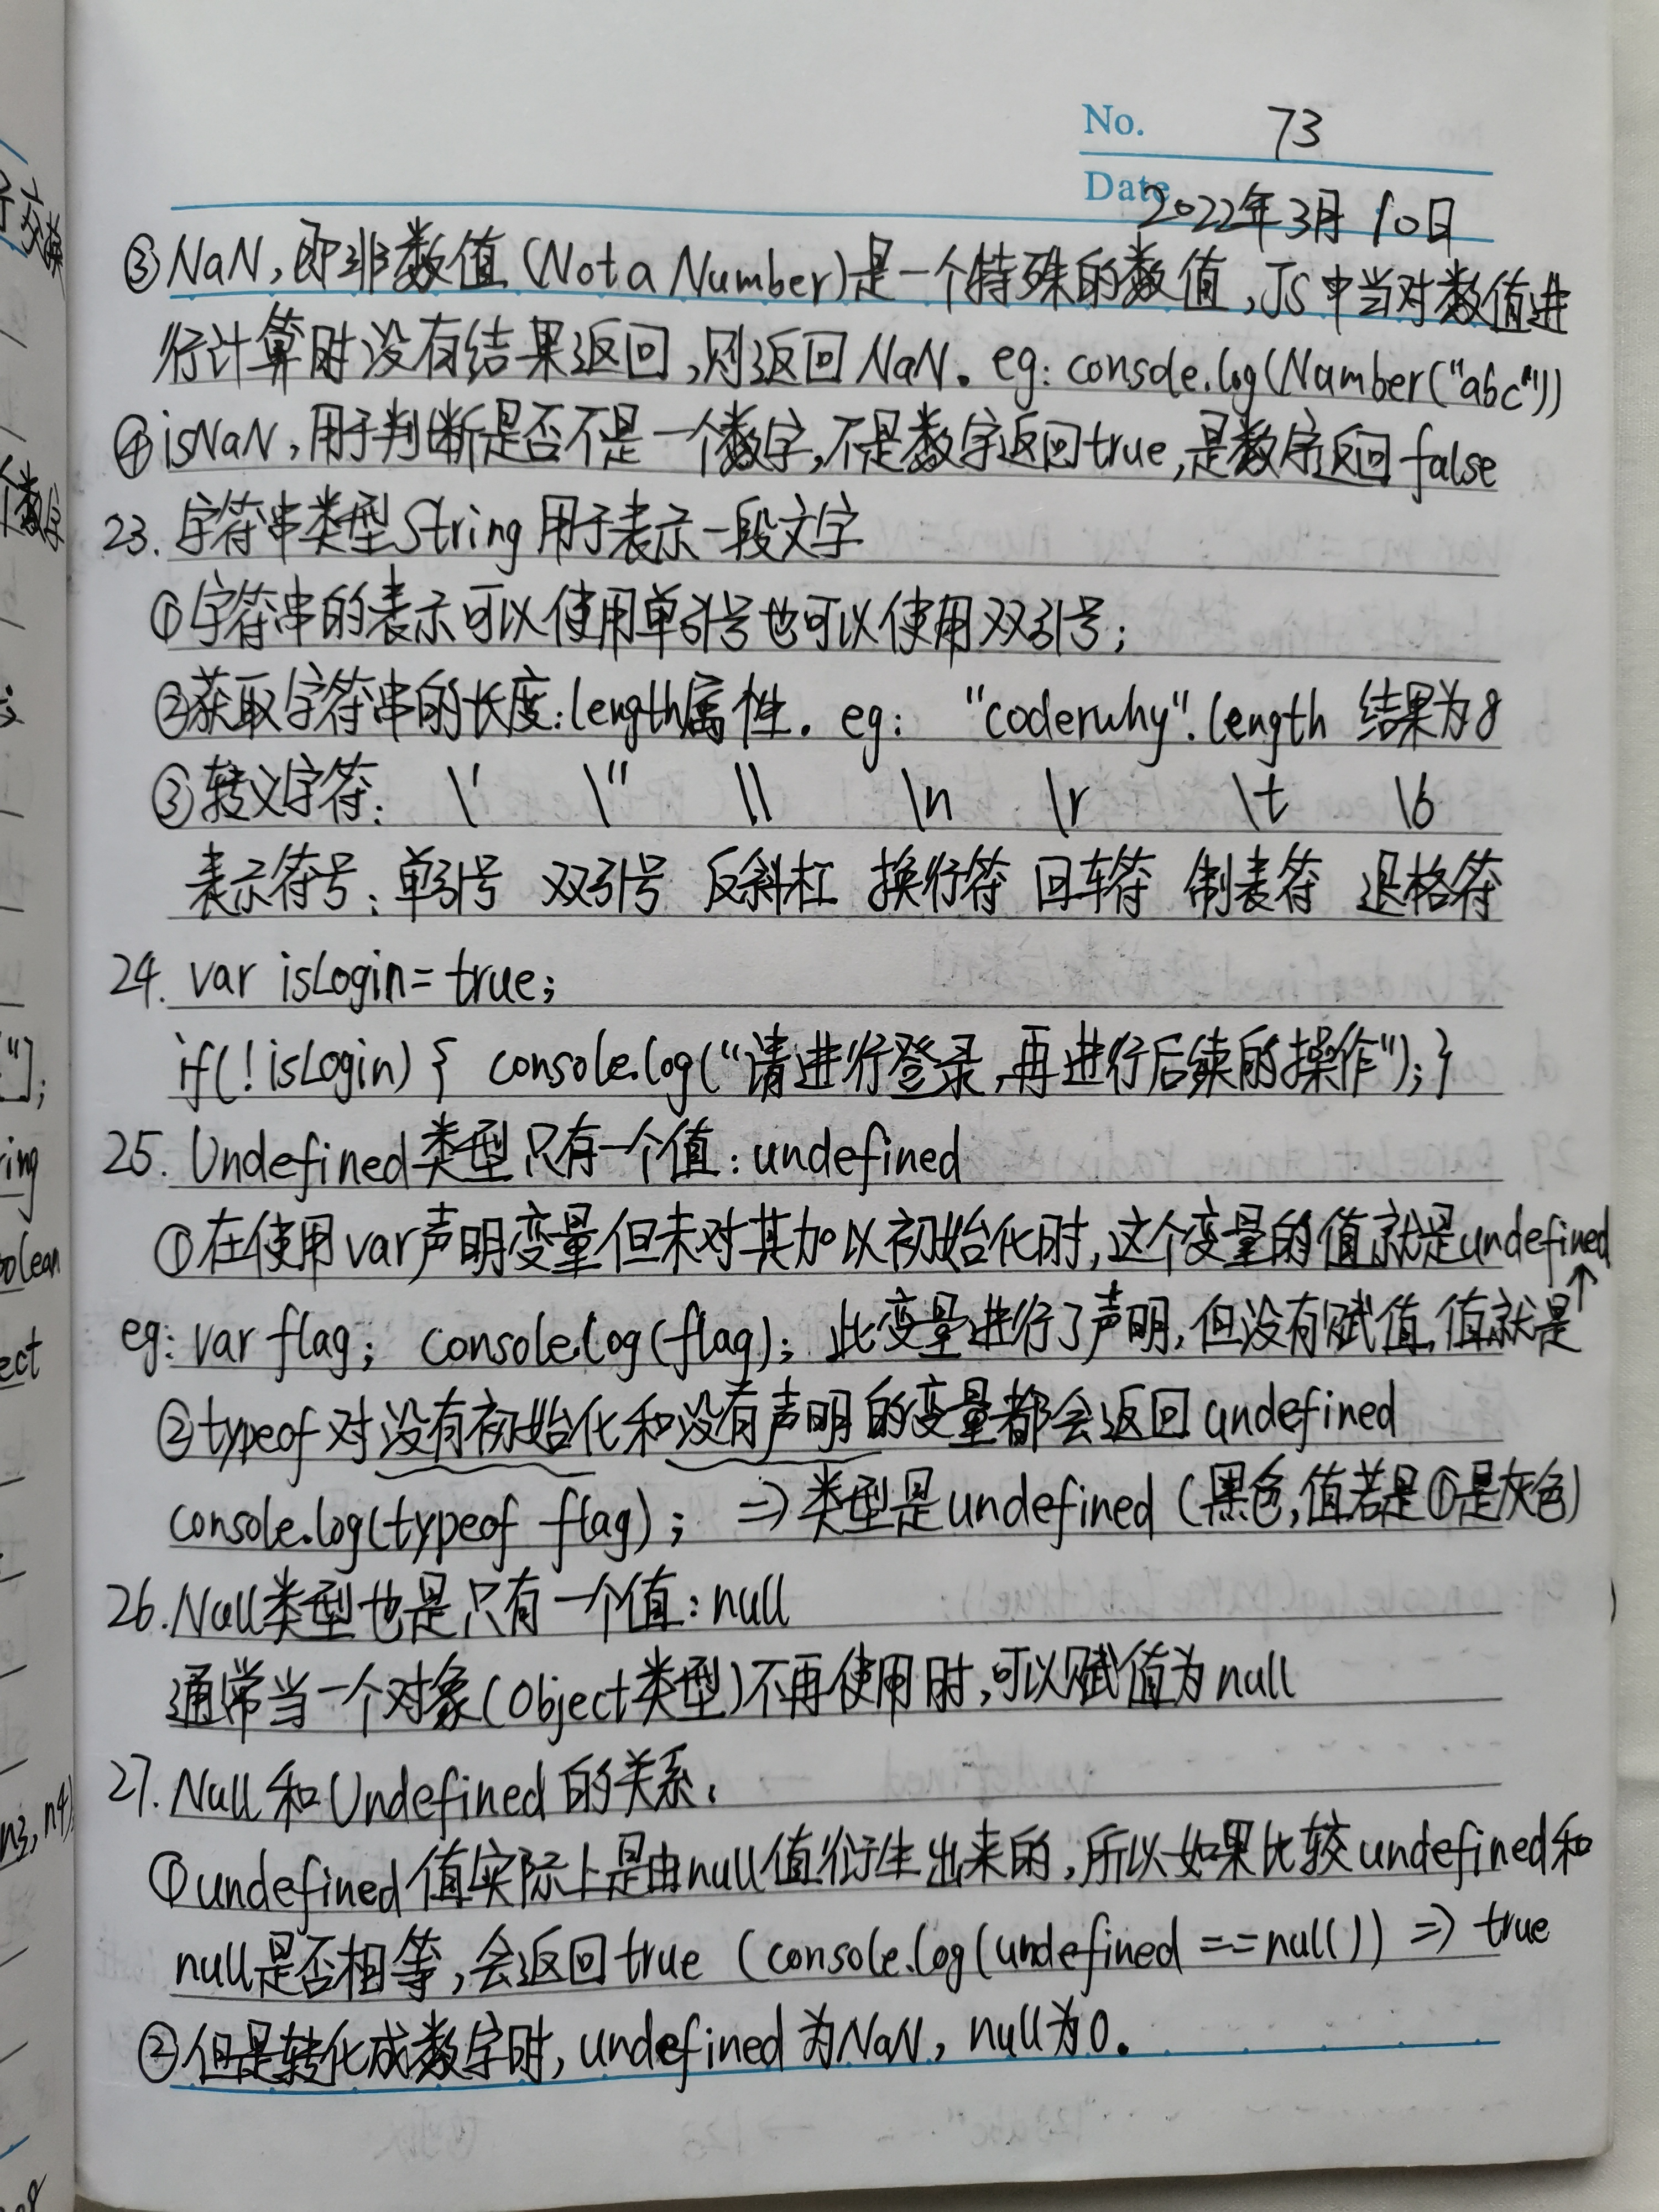 No. 73
Date 2022年3月10日
③NaN,即非数值(Not a Number)是一个特殊的数值,JS中当对数值进
行计算时没有结果返回,则返回NaN。eg: console.log(Number("abc"))
④isNaN,用于判断是否不是一个数字,不是数字返回true,是数字返回false
23. 字符串类型String用于表示一段文字
①字符串的表示可以使用单引号也可以使用双引号;
②获取字符串的长度:length属性。eg: "coderwhy".length 结果为8
③转义字符: \' \" \\ \n \r \t \b
表示符号:单引号 双引号 反斜杠 换行符 回车符 制表符 退格符
24. var isLogin=true;
if(!isLogin){ console.log("请进行登录,再进行后续的操作");}
25. Undefined类型只有一个值:undefined
①在使用var声明变量但未对其加以初始化时,这个变量的值就是undefined
eg: var flag; console.log(flag); 此变量进行了声明,但没有赋值,值就是↑
②typeof对没有初始化和没有声明的变量都会返回undefined
console.log(typeof flag); => 类型是undefined (黑色,值若是①是灰色)
26. Null类型也是只有一个值:null
通常当一个对象(Object类型)不再使用时,可以赋值为null
27. Null和Undefined的关系:
①undefined值实际上是由null值衍生出来的,所以如果比较undefined和
null是否相等,会返回true (console.log(undefined==null)) => true
②但是转化成数字时,undefined为NaN,null为0。